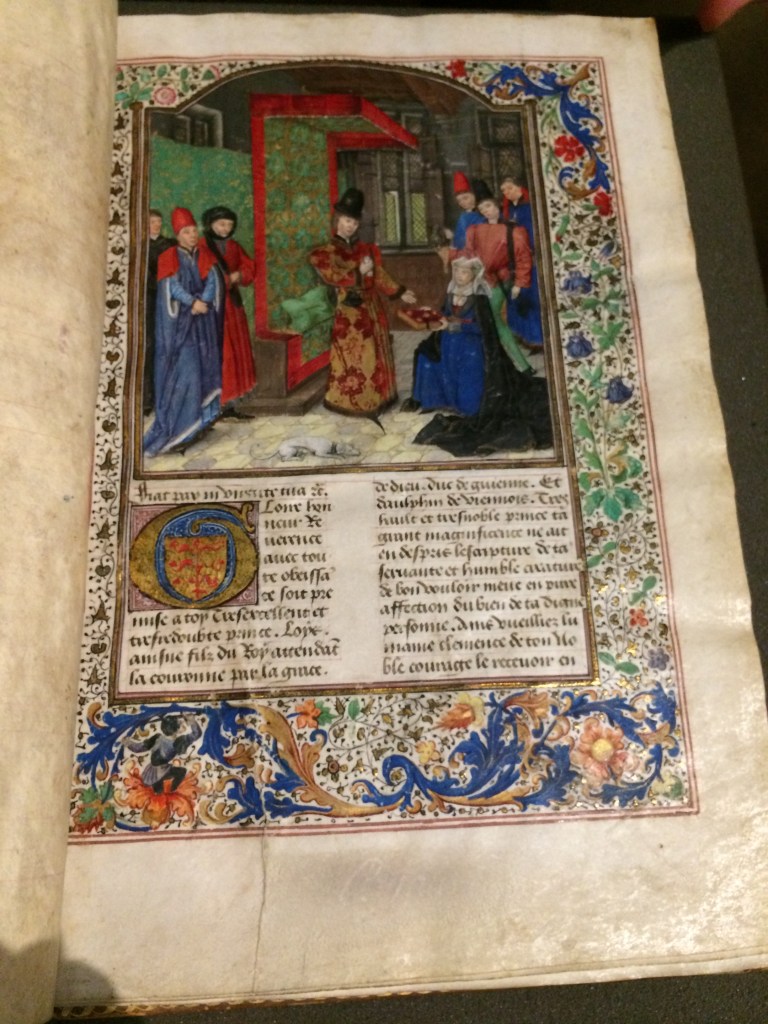 Fiat pax in virtute tua &c.
Gloire hon
neur Re
uerence
auec tou
te obeissā
ce soit pre
mise a toy Tresexcellent et
tresredoubte prince. Loys.
ainsne filz du Roy attendāt
la couronne par la grace.
de dieu. duc de guienne. Et
daulphin de viennois. Tres
hault et tresnoble prince ta
grant magnificence ne ait
en despris lescripture de ta
seruante et humble creature
de bon vouloir meue en pure
affection du bien de ta digne
personne. Ains vueilliez
maine clemence de ton no
ble courage le receuoir en